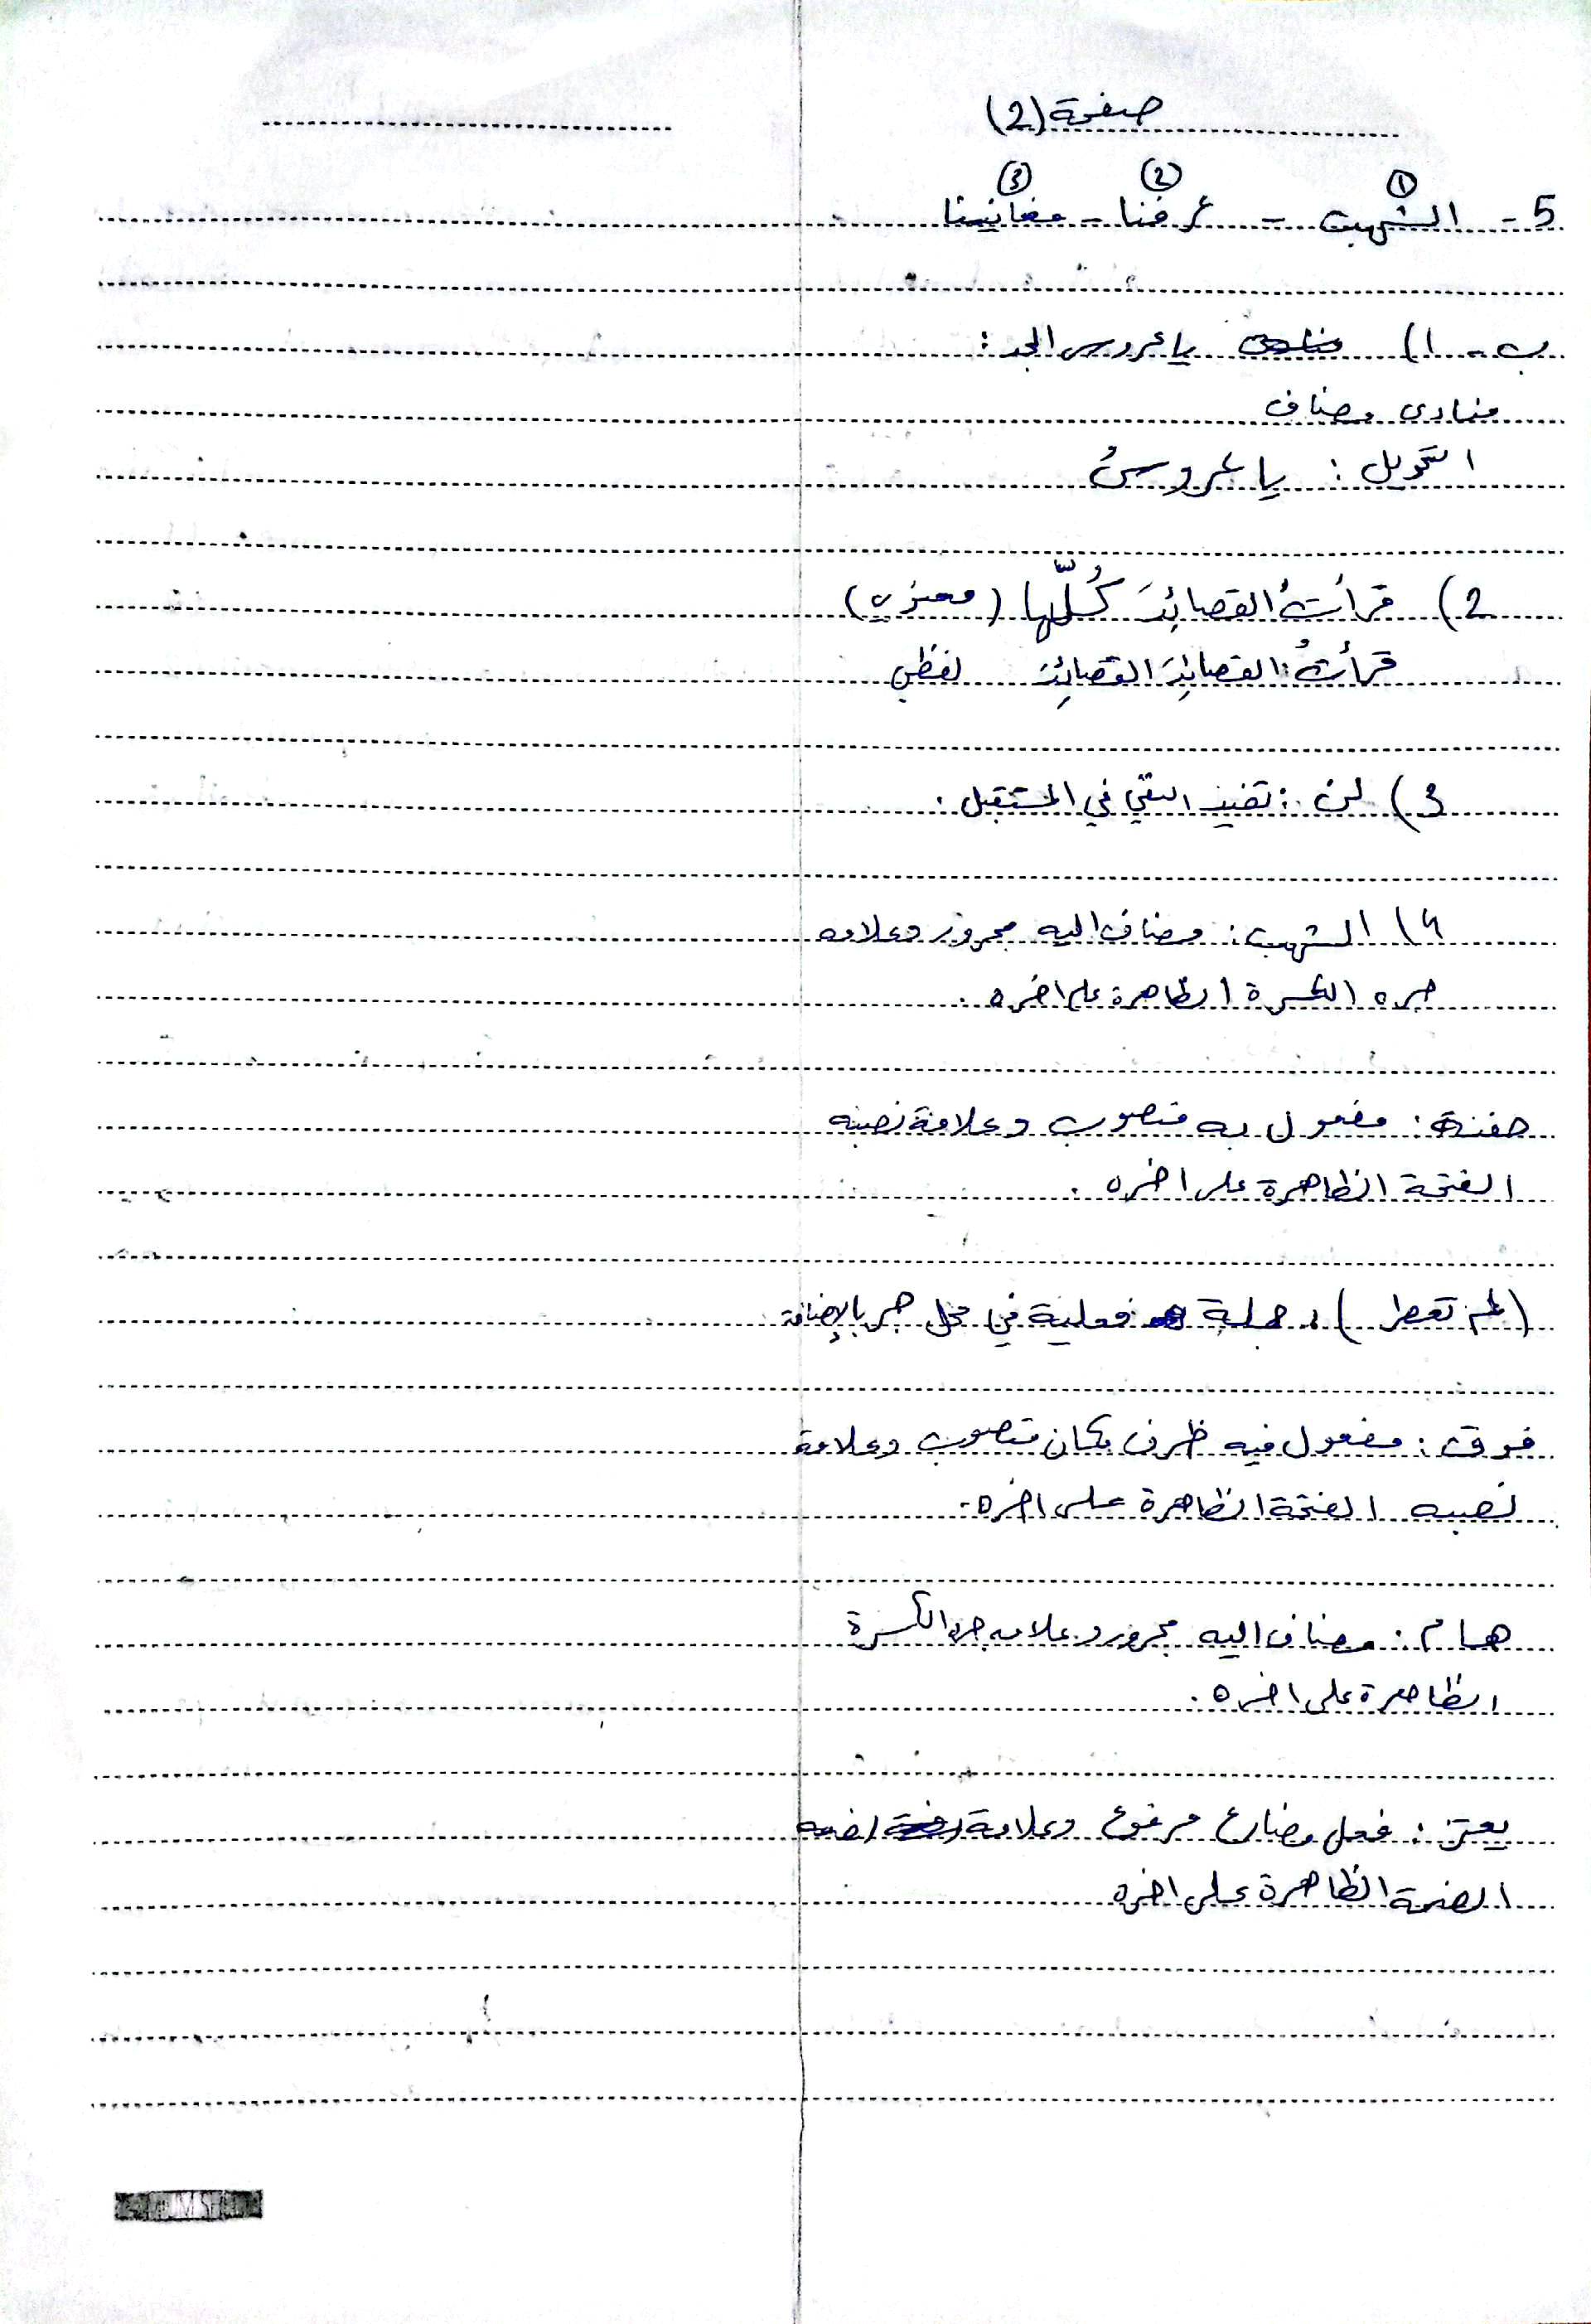 صفحة (2)
① ② ③
5- الشهب - عرفنا - مغانينا
ب- 1) يا عروس المجد :
منادى مضاف
التحويل : يا عروسُ
2) قرأتُ القصائدَ كُلَّها (معنوي)
قرأتُ القصائدَ القصائدَ لفظي
3) لن : تفيد النفي في المستقبل .
4) الشهب : مضاف اليه مجرور وعلامه
جره الكسرة الظاهرة على اخره .
حفنة : مفعول به منصوب وعلامة نصبه
الفتحة الظاهرة على اخره .
(لم تعطر) : جملة فعلية في محل جر بالإضافة
فوق : مفعول فيه ظرف مكان منصوب وعلامة
نصبه الفتحة الظاهرة على اخره .
هام : مضاف اليه مجرور وعلامه جره الكسرة
الظاهرة على اخره .
يعتز : فعل مضارع مرفوع وعلامة
الضمة الظاهرة على اخره